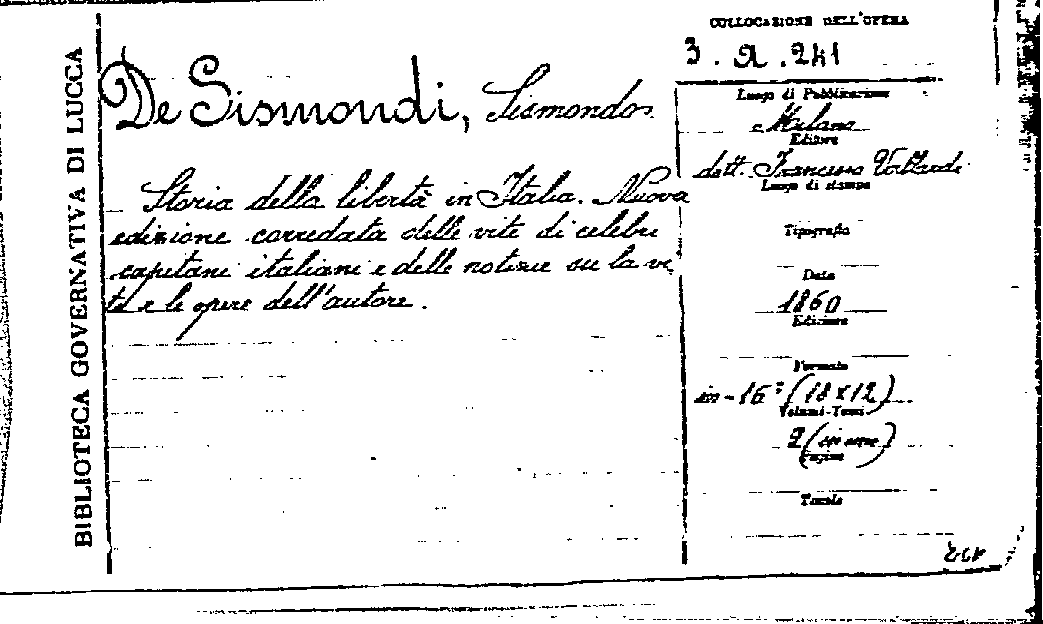 BIBLIOTECA GOVERNATIVA DI LUCCA
De Sismondi, Sismondo.
Storia della libertà in Italia. Nuova
edizione corredata delle vite di celebri
capetani italiani e delle notizie su la vi-
ta e le opere dell'autore.
COLLOCAZIONE DELL'OPERA
3. A. 241
Luogo di Pubblicazione
Milano
Editore
dott. Francesco Vallardi
Luogo di stampa
Tipografia
Data
1860
Edizione
Formato
in-16° (18x12)
Volumi-Tomi
2 (in uno)
Pagine
Tavole